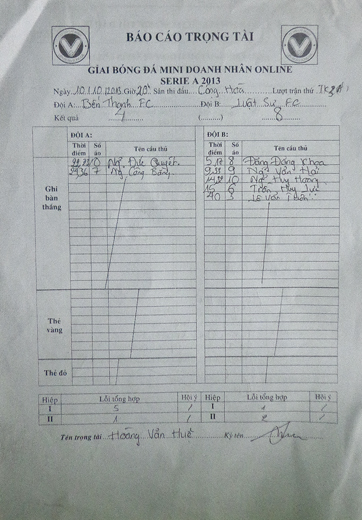 BÁO CÁO TRỌNG TÀI
GIẢI BÓNG ĐÁ MINI DOANH NHÂN ONLINE
SERIE A 2013
Ngày 10.1.10.2013 Giờ 20h Sân thi đấu Cộng Hòa Lượt trận thứ
Đội A: Bến Thành FC Đội B: Luật Sư FC
Kết quả 4 (........) 8
ĐỘI A: ĐỘI B:
Thời điểm Số áo Tên cầu thủ Thời điểm Số áo Tên cầu thủ
10 Ngô Đức Quyết 5,17 8 Đặng Đăng Khoa
7 Ng Công 9 Ngô Văn Hải
10 Ngô Huy Hoàng
15 6 Trần Huy
3 Lê Văn
Ghi bàn thắng
Thẻ vàng
Thẻ đỏ
Hiệp Lỗi tổng hợp Hội ý Hiệp Lỗi tổng hợp Hội ý
I 5 / I 1 /
II 1 / II 2 /
Tên trọng tài Hoàng Văn Huế Ký tên